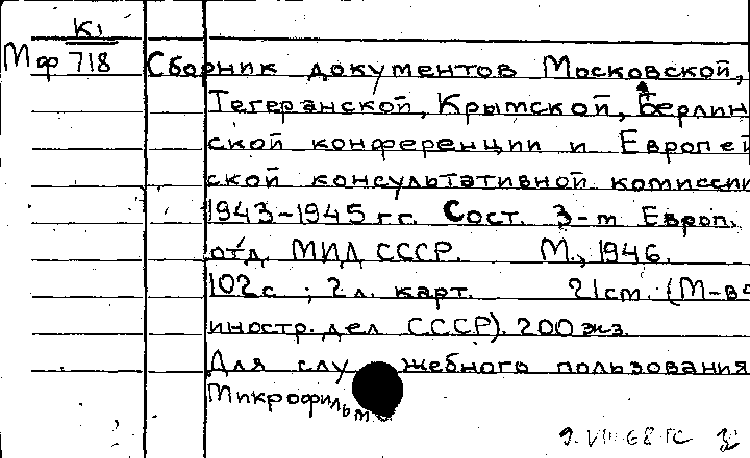 К1
Мф 718 Сборник документов Московской,
Тегеранской, Крымской, Берлин
ской конференции и Европей
ской консультативной комиссии
1943-1945 гг. Сост. 3-т Европ.
отд. МИД СССР. М., 1946.
102 с ; 2 л. карт. 21 cm. (М-во
иностр. дел СССР). 200 экз.
Для служебного пользования
Микрофильм
9.VIII-68